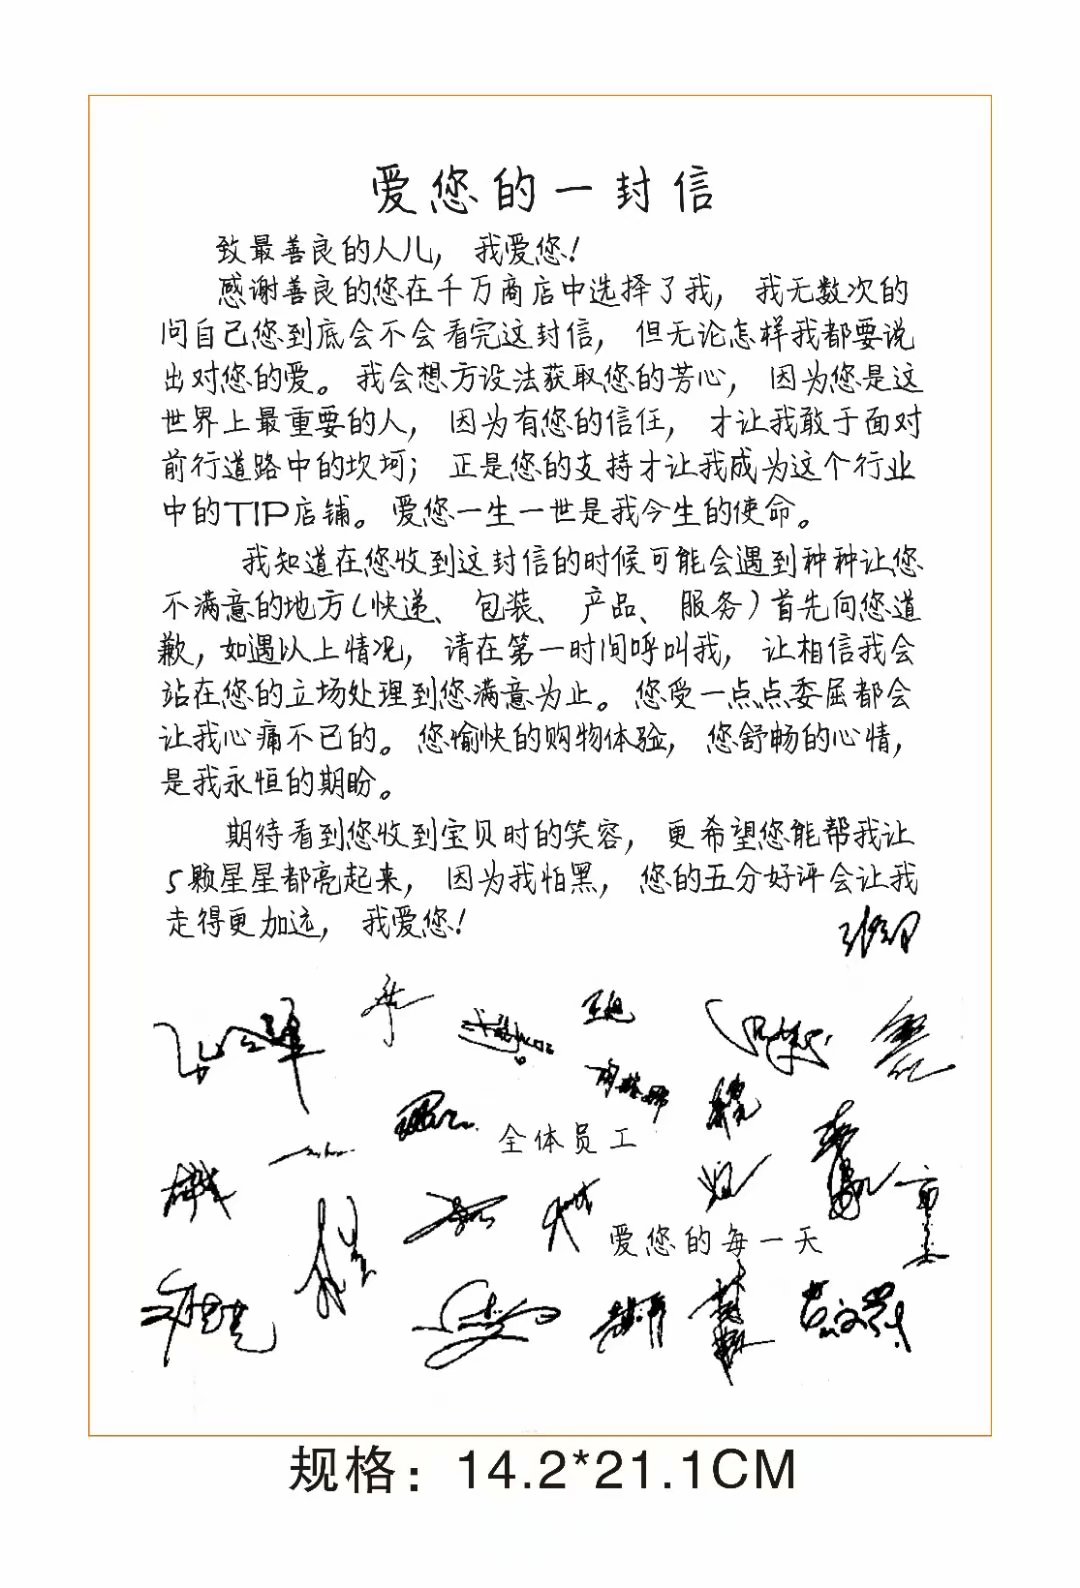 爱您的一封信
致最善良的人儿，我爱您！
感谢善良的您在千万商店中选择了我，我无数次的
问自己您到底会不会看完这封信，但无论怎样我都要说
出对您的爱。我会想方设法获取您的芳心，因为您是这
世界上最重要的人，因为有您的信任，才让我敢于面对
前行道路中的坎坷；正是您的支持才让我成为这个行业
中的TIP店铺。爱您一生一世是我今生的使命。
我知道在您收到这封信的时候可能会遇到种种让您
不满意的地方(快递、包装、产品、服务)首先向您道
歉，如遇以上情况，请在第一时间呼叫我，让相信我会
站在您的立场处理到您满意为止。您受一点点委屈都会
让我心痛不已的。您愉快的购物体验，您舒畅的心情，
是我永恒的期盼。
期待看到您收到宝贝时的笑容，更希望您能帮我让
5颗星星都亮起来，因为我怕黑，您的五分好评会让我
走得更加远，我爱您！
全体员工
爱您的每一天
规格：14.2*21.1CM